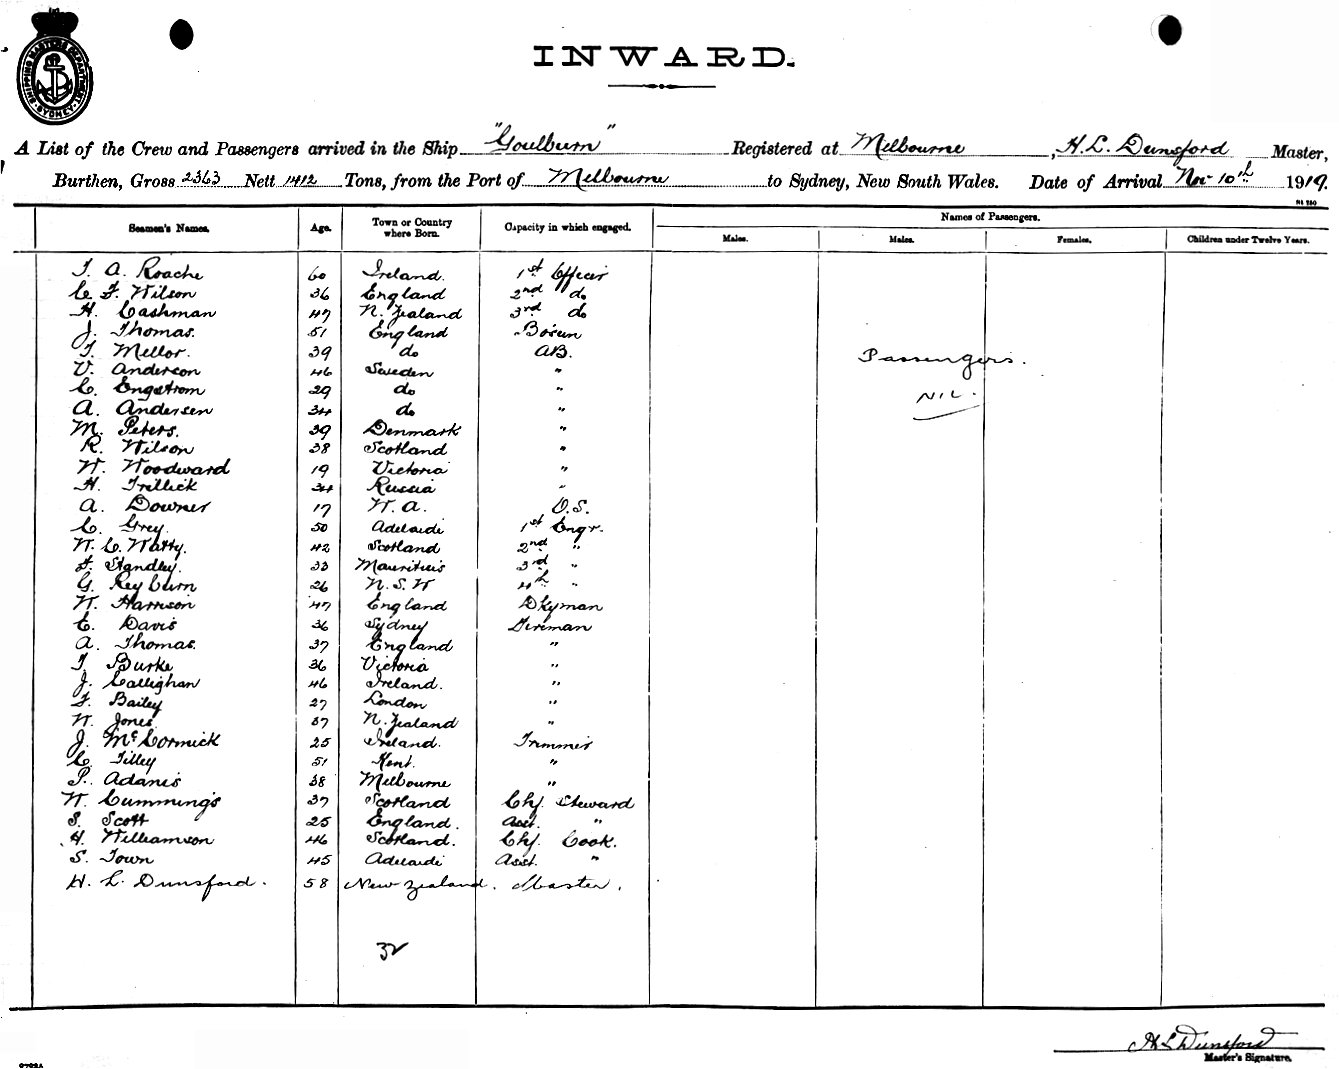 SHIPPING MASTER'S DEPARTMENT SYDNEY
INWARD.
A List of the Crew and Passengers arrived in the Ship "Goulburn" Registered at Melbourne, H. L. Dunsford Master,
Burthen, Gross 2363 Nett 1412 Tons, from the Port of Melbourne to Sydney, New South Wales. Date of Arrival Nov 10th 1919.
Seamen's Names. Age. Town or Country where Born. Capacity in which engaged. Names of Passengers.
Males. Males. Females. Children under Twelve Years.
T. A. Roache 60 Ireland. 1st Officer
C. F. Wilson 36 England 2nd do
H. Cashman 47 N. Zealand 3rd do
J. Thomas. 51 England Bosun
T. Mellor. 39 do AB.
Passengers.
V. Anderson 46 Sweden "
C. Engstrom 29 do "
NIL.
A. Andersen 34 do "
M. Peters. 39 Denmark "
R. Wilson 38 Scotland "
W. Woodward 19 Victoria "
H. Trillick 34 Russia "
A. Downer 17 W. A. O.S.
C. Grey. 50 Adelaide 1st Engr.
W. C. Watty. 42 Scotland 2nd "
F. Standley. 33 Mauritius 3rd "
G. Reyburn 26 N. S. W 4th "
W. Harrison 47 England Dkyman
E. Davis 36 Sydney Fireman
A. Thomas. 37 England "
T. Burke 36 Victoria "
J. Callighan 46 Ireland. "
F. Bailey 27 London "
W. Jones 37 N. Zealand "
J. McCormick 25 Ireland. Trimmer
C. Tilley 51 Kent. "
P. Adams 38 Melbourne "
W. Cummings 37 Scotland Chf. Steward
S. Scott 25 England. Asst. "
H. Williamson 46 Scotland. Chf. Cook.
S. Town 45 Adelaide Asst. "
H. L. Dunsford. 58 New Zealand. Master.
32
H L Dunsford
Master's Signature.